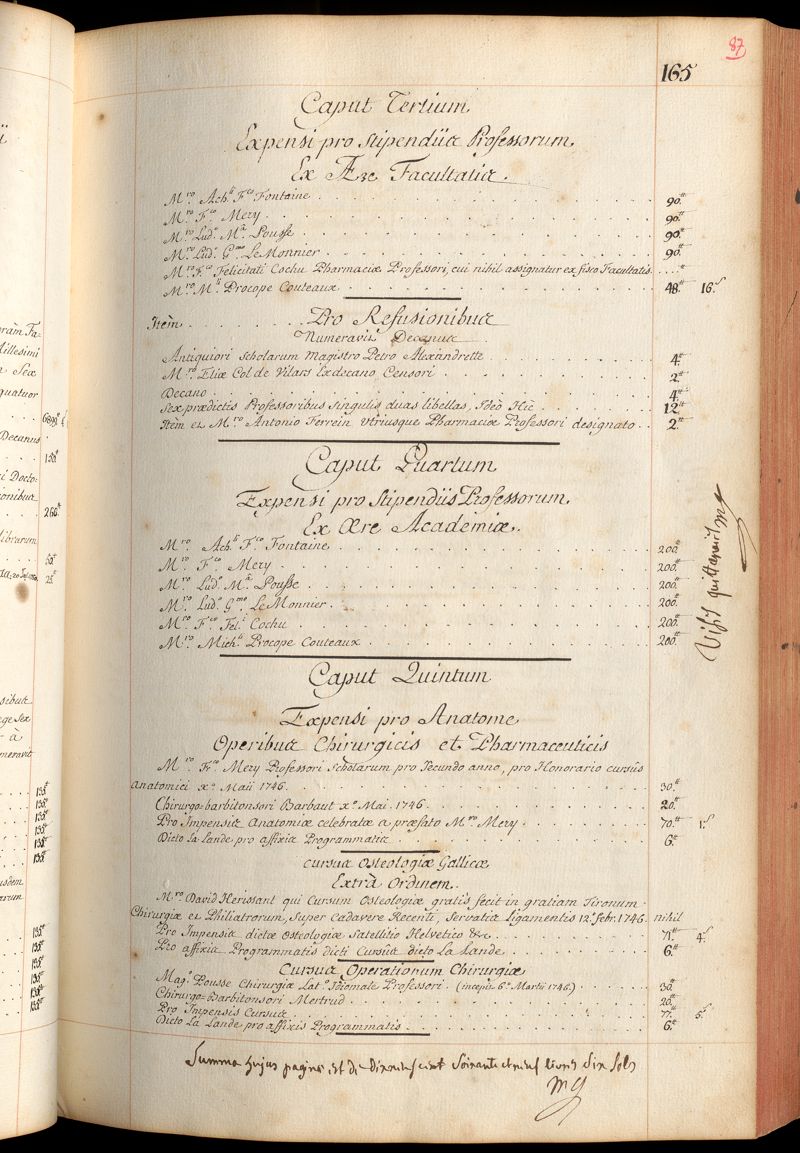 87
165
Caput Tertium
Expensi pro Stipendiis Professorum.
Ex Ære Facultatis.
M.ro Ach.li F.co Fontaine . . . 90.tt
M.ro F.co Mery . . . 90.tt
M.ro Lud.o M.a Pousse . . . 90.tt
M.ro Lud.o G.mo Le Monnier . . . 90.tt
M.ro F.co Felicitati Cochu Pharmaciæ Professori, cui nihil assignatur ex fisco Facultatis . . . . tt
M.ro M.li Procope Couteaux . . . 48.tt 16.s
Item . . . Pro Refusionibus
Numeravit Decanus
Antiquiori Scholarum Magistro Petro Alexandrette . . . 4.tt
M.ro Eliæ Col de Vilars Exdecano, Censori . . . 2.tt
Decano . . . 4.tt
Sex prædictis Professoribus singulis duas libellas, Ideò Hic . . . 12.tt
Item et M.ro Antonio Ferrein Utriusque Pharmaciæ Professori designato . . 2.tt
Caput Quartum
Expensi pro Stipendiis Professorum.
Ex Ære Academiæ.
M.ro Ach.li F.co Fontaine . . . 200.tt
M.ro F.co Mery . . . 200.tt
M.ro Lud.o M.a Pousse . . . 200.tt
M.ro Lud.o G.mo Le Monnier . . . 200.tt
M.ro F.co Fel.i Cochu . . . 200.tt
M.ro Mich.li Procope Couteaux . . . 200.tt
Caput Quintum
Expensi pro Anatome
Operibus Chirurgicis et Pharmaceuticis
M.ro F.co Mery Professori Scholarum pro Secundo anno, pro Honorario cursûs
anatomici x.a Maii 1746 . . . 30.tt
Chirurgo-barbitonsori Barbaut x.a Mai. 1746 . . . 20.tt
Pro Impensis Anatomiæ celebratæ a præfato M.ro Mery . . . 70.tt 1.s
Dicto La Lande pro affixis Programmatis . . . 6.tt
Cursus Osteologiæ Gallicæ
Extrà Ordinem.
M.ro David Herissant qui Cursum Osteologiæ gratis fecit in gratiam Tironum
Chirurgiæ et Philiatrorum, Super Cadavere Recenti, Servatis Ligamentis 12.a febr. 1746. nihil
Pro Impensis dictæ Osteologiæ Satellitio Helvetico &c. . . . 71.tt 4.s
Pro affixis Programmatis dicti Cursûs dicto La Lande . . . 6.tt
Cursus Operationum Chirurgiæ
Mag.o Pousse Chirurgiæ Lat.o Idiomate Professori . (incepit 6.a Martii 1746.) . . . 30.tt
Chirurgo-Barbitonsori Mertrud . . . 20.tt
Pro Impensis Cursus . . . 77.tt 5.s
Dicto La Lande pro affixis Programmatis . . . 6.tt
Summa hujus paginæ est de Dixneuf cent Soixante et neuf livres Six Sols